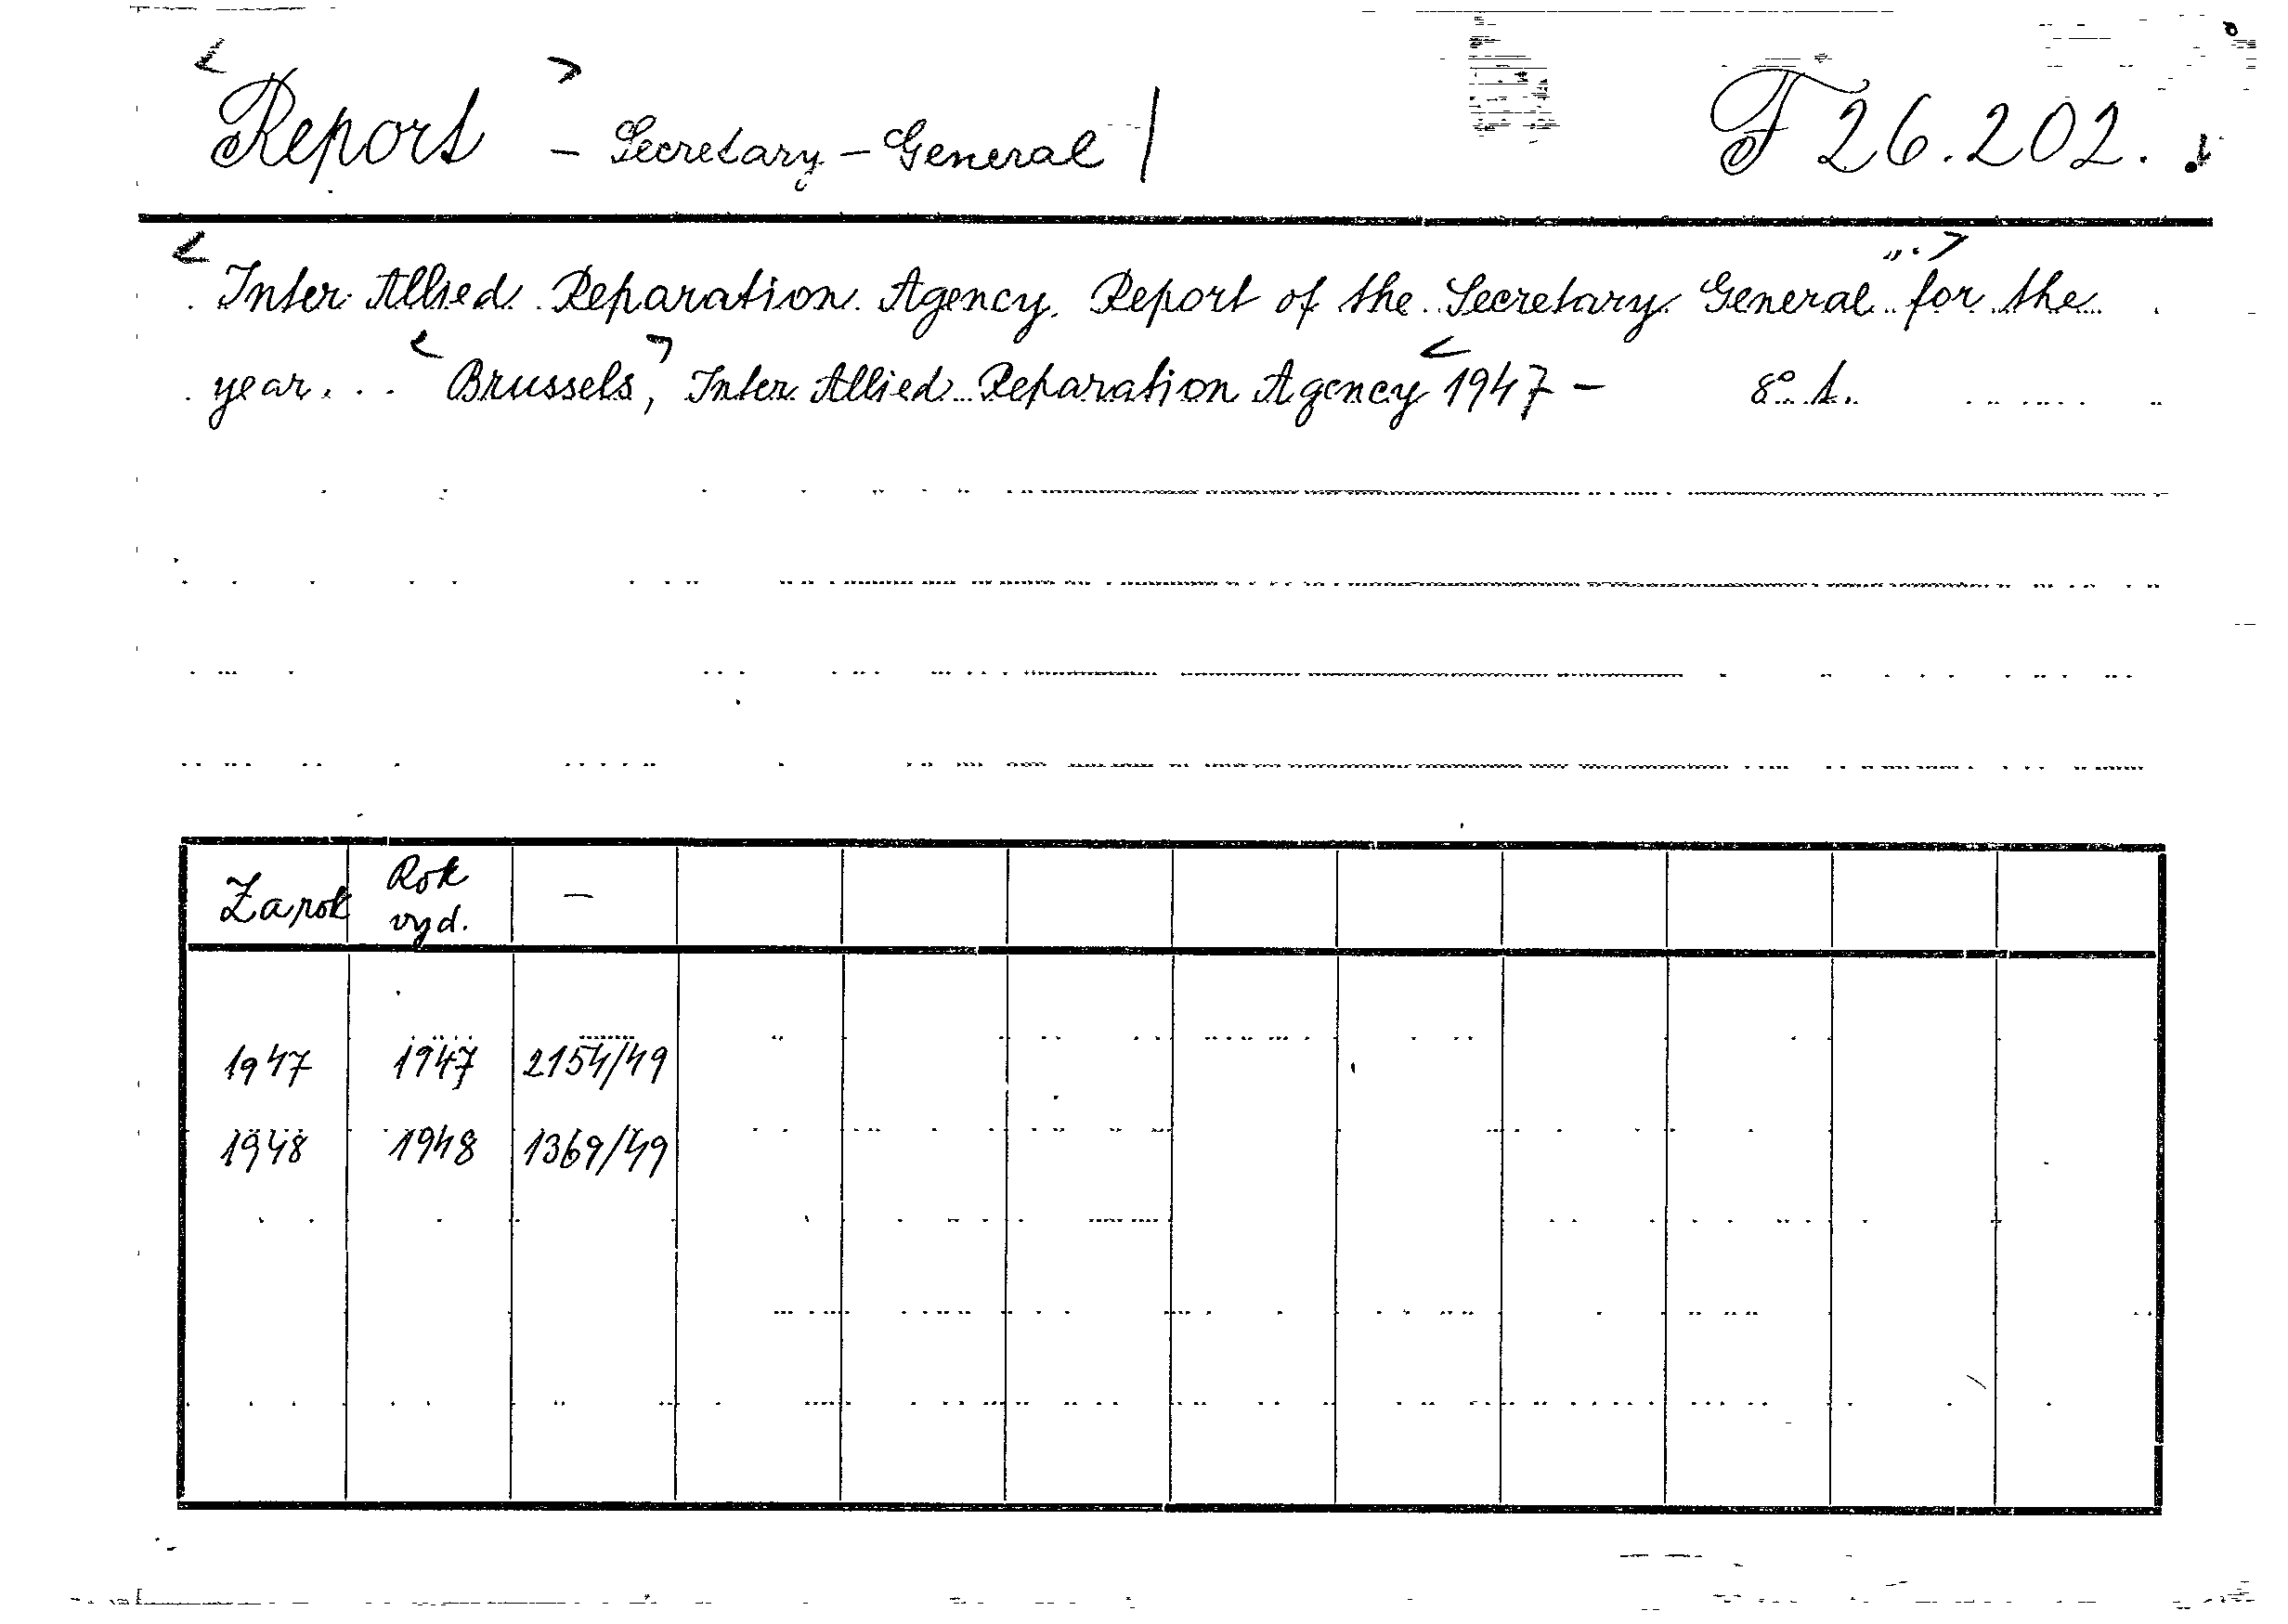 <Report> - Secretary - General / F 26.202.
<Inter Allied Reparation Agency. Report of the Secretary General ..."> for the
year... <Brussels,> Inter Allied Reparation Agency < 1947 - 8° t.
Za rok Rok vyd. —
1947 1947 2154/49
1948 1948 1369/49